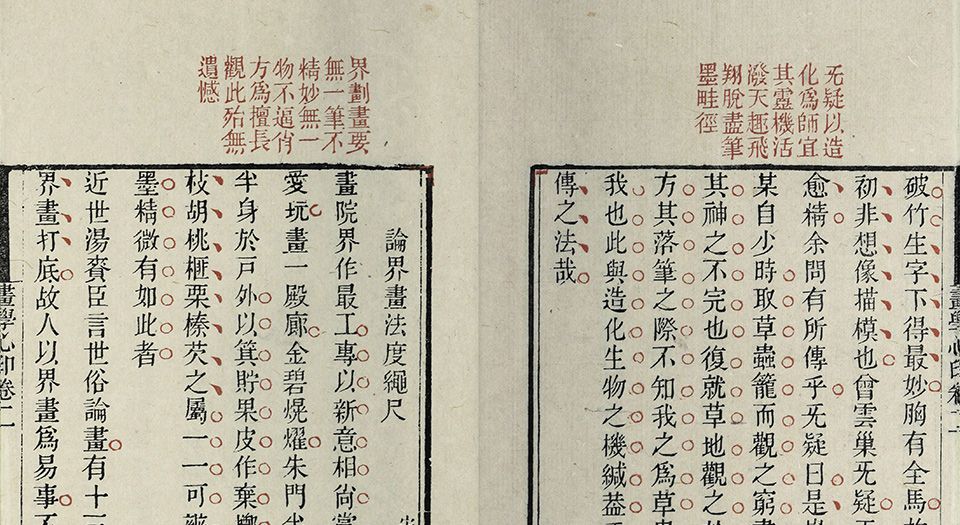 无疑以造
化為師宜
其靈機活
潑天趣飛
翔脫盡筆
墨畦徑
畫學心印卷
破竹生字下得最妙胸有全馬
初非想像描模也曾雲巢无疑
愈精余問有所傳乎无疑曰是
某自少時取草蟲籠而觀之窮晝
其神之不完也復就草地觀之
方其落筆之際不知我之為草
我也此與造化生物之機緘蓋
傳之法哉
界劃畫要
無一筆不
精妙無一
物不逼俏
方為擅長
觀此殆無
遺憾
論界畫法度繩尺
畫院界作最工專以新意相尚嘗
愛玩畫一殿廊金碧熀耀朱門
半身於戸外以箕貯果皮作棄擲
枝胡桃榧栗榛芡之屬一一可
墨精微有如此者
近世湯賷臣言世俗論畫有十
界畫打底故人以界畫為易事不
畫學心印卷